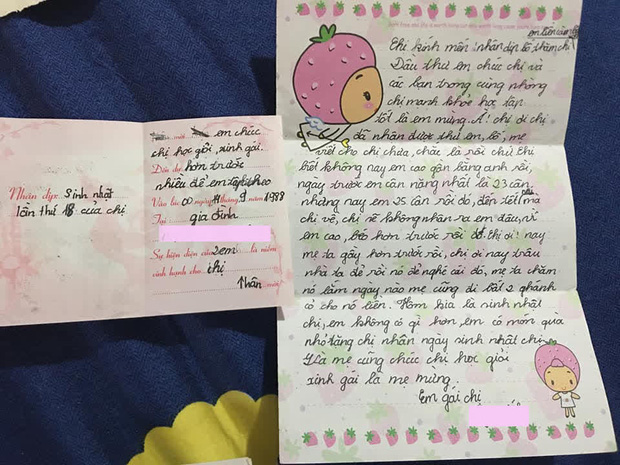 Nhân dịp: Sinh nhật
lần thứ 18 của chị
em chúc
chị học giỏi, xinh gái.
Đến dự hơn trước
nhiều để em
Vào lúc 00 ngày 11 tháng 9 năm 1988
Tại gia đình
Sự hiện diện của 2em là niềm
vinh hạnh cho chị
Thân mời!
em tiên
Chị kính mến nhân dịp bố thăm chị
Đầu thư em chúc chị và
các bạn trong cùng những
chị mạnh khỏe học tập
tốt là em mừng. À! chị di chị
đã nhận được thư em, bố, mẹ
viết cho chị chưa, chắc là rồi chứ. Chị
biết không nay em cao gần bằng anh rồi,
ngày trước em cân nặng nhất là 23 cân,
nhưng nay em 25 cân rồi đó, đến tết mà
chị về, chị sẽ không nhận ra em đâu, vì
em cao, béo hơn trước rồi đó. Chị di! nay
mẹ ta gầy hơn trước rồi, chị di nay trâu
nhà ta đẻ rồi nó đẻ nghé cái đó, mẹ ta chăm
nó lắm ngày nào mẹ cũng đi cắt 2 ghánh
cỏ cho nó liền. Hôm kia là sinh nhật
chị, em không có gì hơn, em có món quà
nhỏ tặng chị nhân ngày sinh nhật chị.
Và mẹ cũng chúc chị học giỏi
xinh gái là mẹ mừng.
Em gái chị